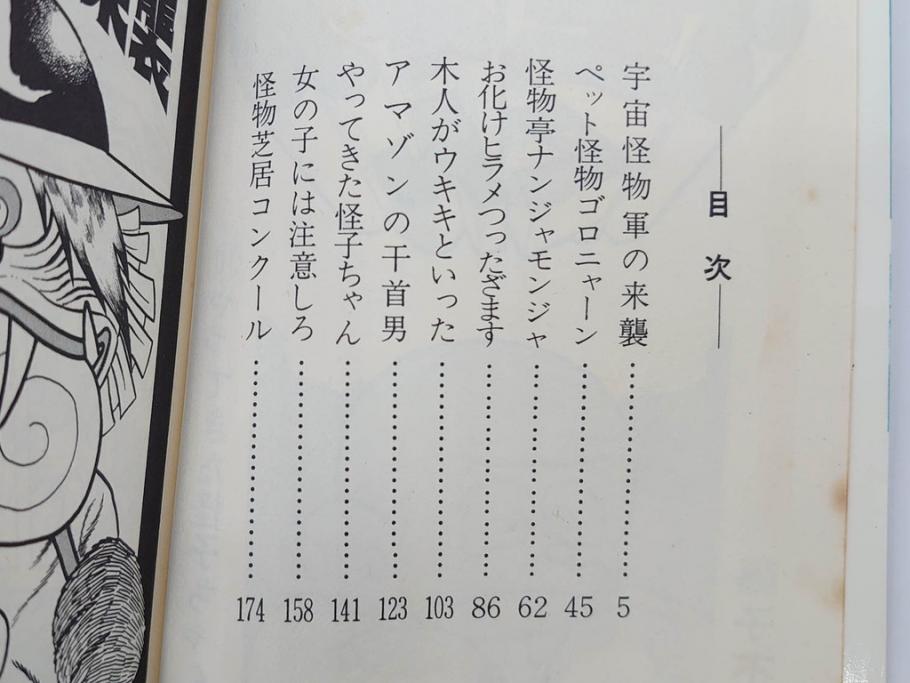 目次
宇宙怪物軍の来襲 5
ペット怪物ゴロニャーン 45
怪物亭ナンジャモンジャ 62
お化けヒラメつったざます 86
木人がウキキといった 103
アマゾンの干首男 123
やってきた怪子ちゃん 141
女の子には注意しろ 158
怪物芝居コンクール 174
来襲